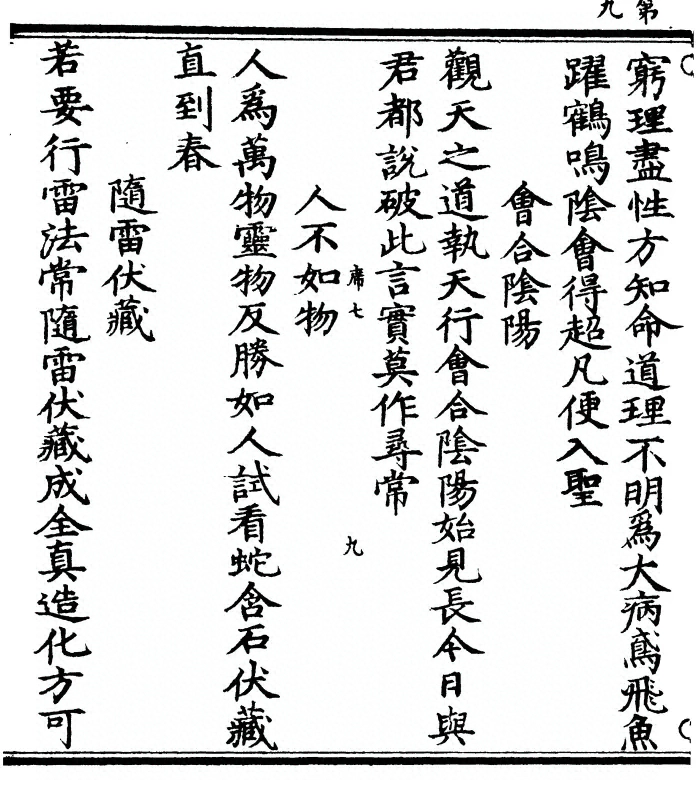 第九
窮理盡性方知命道理不明爲大病鳶飛魚
躍鶴鳴陰會得超凡便入聖
會合陰陽
觀天之道執天行會合陰陽始見長今日與
君都說破此言實莫作尋常
席七
九
人不如物
人爲萬物靈物反勝如人試看蛇含石伏藏
直到春
隨雷伏藏
若要行雷法常隨雷伏藏成全真造化方可